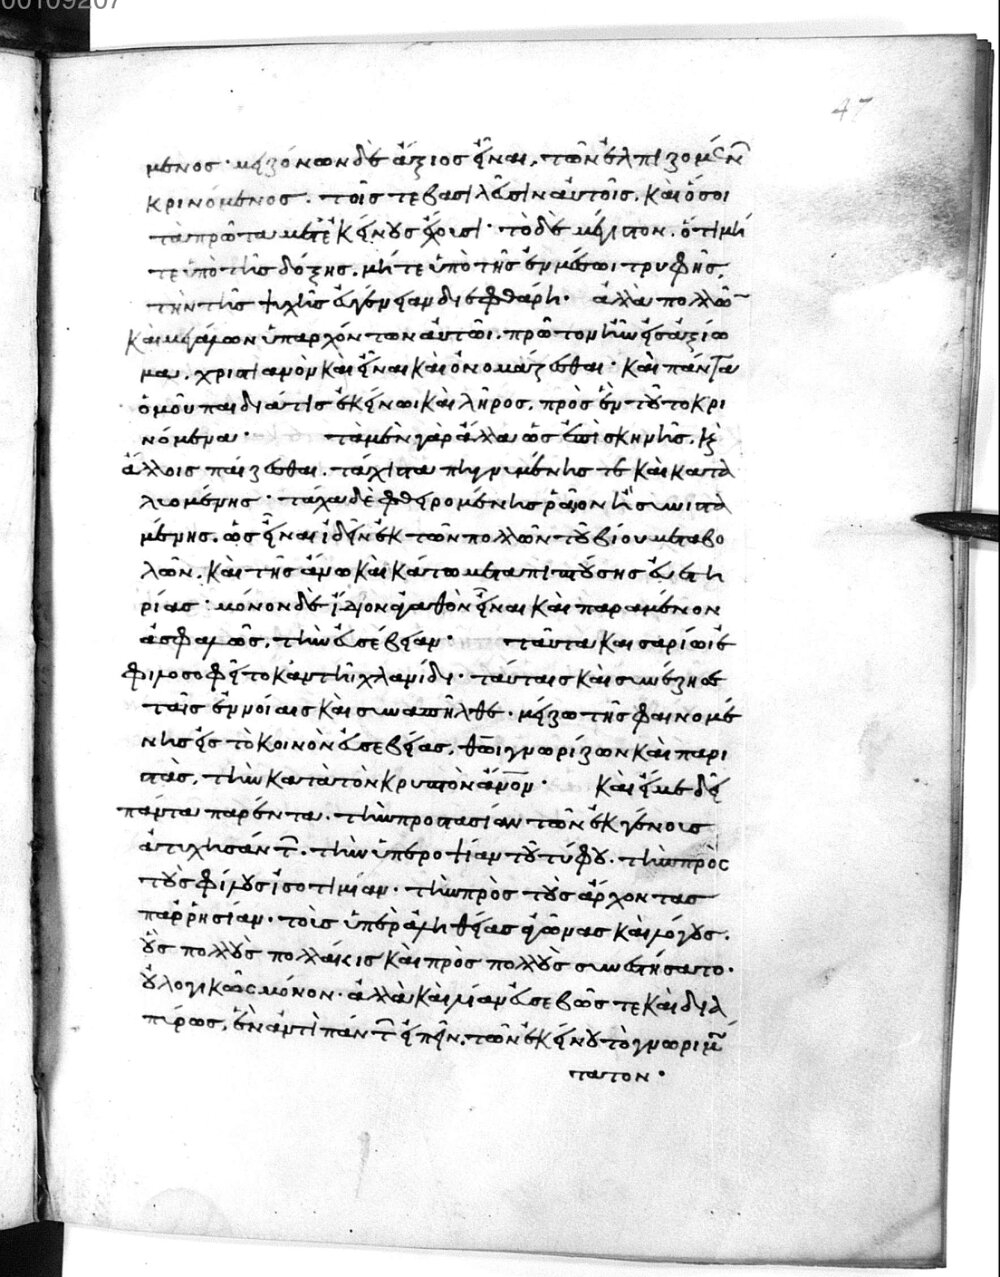 00109207
47
μενος· μειζόνων δὲ ἄξιος εἶναι, τῶν ἐλπιζομένων
κρινόμενος. τοῖς τε βασιλεῦσιν αὐτοῖς, καὶ ὅσοι
τὰ πρῶτα μετ' ἐκείνους ἔχουσι· τὸ δὲ μέγιστον, ὅτι μή
τε ὑπὸ τῆς δόξης, μήτε ὑπὸ τῆς ἐν μέσωι τρυφῆς,
τὴν τῆς ψυχῆς εὐγένειαν διεφθάρη· ἀλλὰ πολλῶν
καὶ μεγάλων ὑπαρχόντων αὐτῶι, πρῶτον ἦν εἰς ἀξίω
μα, χριστιανὸν καὶ εἶναι καὶ ὀνομάζεσθαι· καὶ πάντα
ὁμοῦ παιδιά τις ἐκείνωι καὶ λῆρος, πρὸς ἓν τοῦτο κρι
νόμενα· τὰ μὲν γὰρ ἄλλα ὡς ἐπὶ σκηνῆς, καὶ
ἄλλοις παίζεσθαι, τάχιστα πηγνυμένης τε καὶ κατα
λυομένης· τάχα δὲ φθειρομένης ῥᾷον ἢ συνιστα
μένης, ὡς εἶναι ἰδεῖν ἐκ τῶν πολλῶν τοῦ βίου μεταβο
λῶν, καὶ τῆς ἄνω καὶ κάτω μεταπιπτούσης εὐετη
ρίας· μόνον δὲ ἴδιον ἀγαθὸν εἶναι καὶ παραμένον
ἀσφαλῶς, τὴν εὐσέβειαν· ταῦτα καισαρίωι ἐ
φιλοσοφεῖτο κἀν τῆι χλαμίδι· ταύταις καὶ συνέζησε
ταῖς ἐννοίαις καὶ συναπῆλθε· μείζω τῆς φαινομέ
νης εἰς τὸ κοινὸν εὐσεβείας, θεῶι γνωρίζων καὶ παρι
στὰς, τὴν κατὰ τὸν κρυπτὸν ἄνθρωπον· καὶ εἴ με δεῖ
πάντα παρέντα, τὴν προστασίαν τῶν ἐκ γένους
ἀτυχησάντων, τὴν ὑπεροψίαν τοῦ τύφου, τὴν πρὸς
τοὺς φίλους ἰσοτιμίαν, τὴν πρὸς τοὺς ἄρχοντας
παρρησίαν· τοὺς ὑπὲρ ἀληθείας ἀγῶνας καὶ λόγους,
οὓς πολλοὺς πολλάκις καὶ πρὸς πολλοὺς συνεστήσατο·
οὐ λογικῶς μόνον, ἀλλὰ καὶ λίαν εὐσεβῶς τε καὶ δια
πύρως, ἓν ἀντὶ πάντων εἰπεῖν, τῶν ἐκείνου τὸ γνωριμώ
τατον·